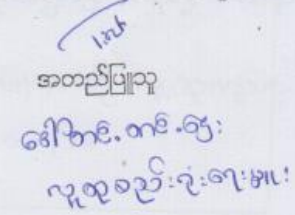 အတည်ပြုသူ
ဒေါ်တင်.တင်.ဌေး
လူထုစည်းရုံးရေးမှူး